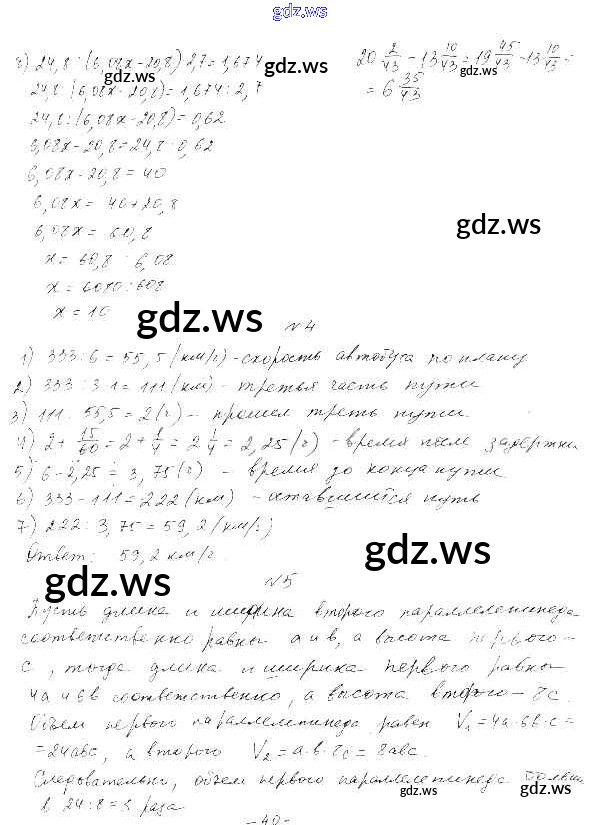 gdz.ws
г) 24,8 : (6,08x-20,8) 2,7 = 1,674
24,8 : (6,08x-20,8) = 1,674 : 2,7
24,8 : (6,08x-20,8) = 0,62
6,08x-20,8 = 24,8 : 0,62
6,08x-20,8 = 40
6,08x = 40+20,8
6,08x = 60,8
x = 60,8 : 6,08
x = 6080 : 608
x = 10
20 2/43 - 13 10/43 = 19 45/43 - 13 10/43 =
= 6 35/43
gdz.ws
gdz.ws
gdz.ws
gdz.ws
gdz.ws
gdz.ws
N 4
1) 333 : 6 = 55,5 (км/г) - скорость автобуса по плану
2) 333 : 3 · 1 = 111 (км) - третья часть пути
3) 111 : 55,5 = 2 (г) - прошел треть пути.
4) 2 + 15/60 = 2 + 1/4 = 2 1/4 = 2,25 (г) - время после задержки
5) 6 - 2,25 = 3,75 (г) - время до конца пути
6) 333 - 111 = 222 (км) - оставшийся путь
7) 222 : 3,75 = 59,2 (км/г)
Ответ: 59,2 км/г.
gdz.ws
gdz.ws
N 5
Пусть длина и ширина второго параллелепипеда
соответственно равны a и b, а высота первого -
c, тогда длина и ширина первого равны
4a и 6b соответственно, а высота второго - 8c.
Объем первого параллелепипеда равен V₁ = 4a · 6b · c =
= 24abc, а второго V₂ = a · b · 8c = 8abc.
Следовательно, объем первого параллелепипеда больше
в 24 : 8 = 3 раза
gdz.ws
gdz.ws
- 40 -